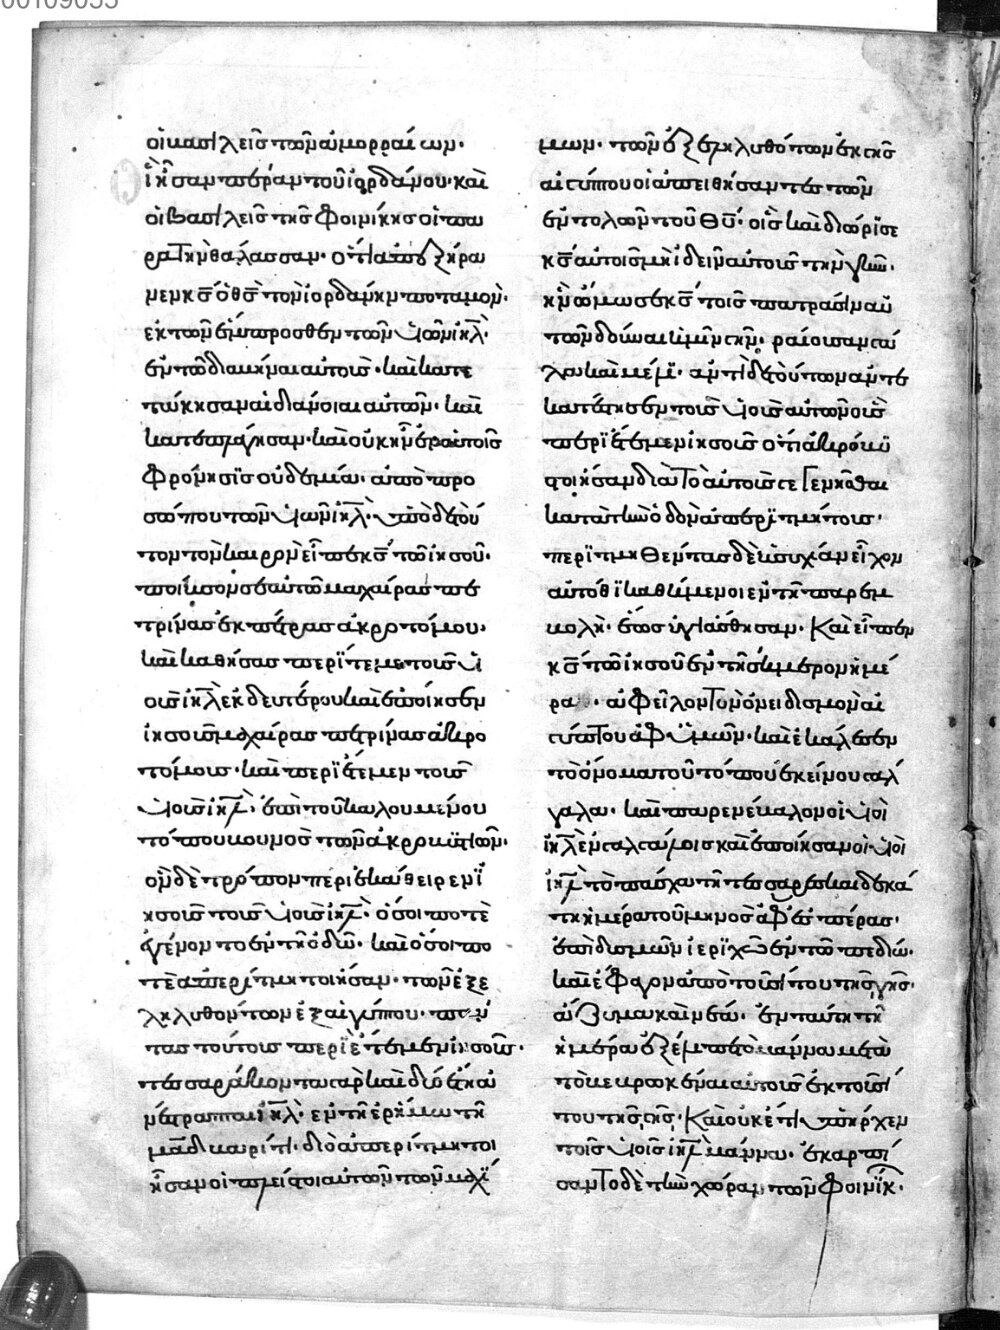 οἱ βασιλεῖς τῶν ἀμορραίων·
οἳ ἦσαν πέραν τοῦ ἰορδάνου· καὶ
οἱ βασιλεῖς τῆς φοινίκης οἱ πα
ρὰ τὴν θάλασσαν· ὅτι ἀπεξήρα
νεν κς̅ ὁ θς̅ τὸν ἰορδάνην ποταμὸν·
ἐκ τῶν ἔμπροσθεν τῶν υἱῶν ιηλ̅·
ἐν τῶ διαβῆναι αὐτοὺς· καὶ κατε
τάκησαν αἱ διάνοιαι αὐτῶν· καὶ
κατεπλάγησαν· καὶ οὐκ ἦν ἐν αὐτοῖς
φρόνησις οὐδεμία· ἀπὸ προ
σώπου τῶν υἱῶν ιηλ̅· ὑπὸ δὲ τοῦ
τον τὸν καιρὸν εἶπε κς̅ τῶ ἰησοῦ·
ποίησον σεαυτῶ μαχαίρας πε
τρίνας ἐκ πέτρας ἀκροτόμου·
καὶ καθήσας περίτεμε τοὺς υἱ
οὺς ιηλ̅ ἐκ δευτέρου καὶ ἐποίησεν
ἰησοῦς μαχαίρας πετρίνας ἀκρο
τόμους· καὶ περιέτεμεν τοὺς
υἱοὺς ιηλ̅· ἐπὶ τοῦ καλουμένου
τόπου βουνος τῶν ἀκροβυστιῶν·
ὃν δὲ τρόπον περιεκάθειρεν ἰ
ησοῦς τοὺς υἱοὺς ιηλ̅· ὅσοι ποτὲ
ἐγένοντο ἐν τῆ ὁδῶ· καὶ ὅσοι πο
τὲ ἀπερίτμητοι ἦσαν· τῶν ἐξε
ληλυθότων ἐξ αἰγύπτου· πάν
τας τούτους περιέτεμεν ἰησοῦς·
τεσσαράκοντα γὰρ καὶ δύο ἔτη ἀ
νέστραπται ιηλ̅· ἐν τῆ ἐρήμω τῆ
μαδβαρίτι· διὸ ἀπερίτμητοι
ἦσαν οἱ πλεῖστοι αὐτῶν τῶν μαχί
μων· τῶν ἐξεληλυθότων ἐκ γῆς
αἰγύπτου οἱ ἀπειθήσαντες τῶν
ἐντολῶν τοῦ θυ̅· οἷς καὶ διώρισε
κς̅ αὐτοῖς μὴ ἰδεῖν αὐτοὺς τὴν γῆν·
ἣν ὤμωσε κς̅ τοῖς πατράσιν αὐ
τῶν δοῦναι ἡμῖν γῆν· ρέουσαν γά
λα καὶ μέλι· ἀντὶ δὲ τούτων ἀντε
κατέστησεν τοὺς υἱοὺς αὐτῶν οὓς
περιέτεμεν ἰησοῦς ὅτι ἀκρόβυ
στοι ἦσαν διὰ τὸ αὐτοὺς γεγενῆσθαι
κατὰ τὴν ὁδὸν ἀπεριτμήτους·
περιτμηθέντας δὲ ἡσυχίαν εἶχον
αὐτόθι καθήμενοι ἐν τῆ παρεμ
βολῆ· ἕως ὑγιάσθησαν· Καὶ εἶπεν
κς̅ τῶ ἰησοῦ ἐν τῆ σήμερον ἡμέ
ρα· ἀφεῖλον τὸν ὀνειδισμὸν αἰ
γύπτου ἀφ' ὑμῶν· καὶ ἐκάλεσεν
τὸ ὄνομα τοῦ τόπου ἐκείνου γάλ
γαλα· καὶ παρενέβαλον οἱ υἱοὶ
ιηλ̅ ἐν γαλγάλοις καὶ ἐποίησαν οἱ υἱοὶ
ιηλ̅ τὸ πάσχα τῆ τεσσαρεσκαιδεκά
τη ἡμέρα τοῦ μηνὸς ἀφ' ἑσπέρας·
ἐπὶ δυσμῶν ἱεριχὼ ἐν τῶ πεδίω·
καὶ ἔφαγον ἀπὸ τοῦ σίτου τῆς γῆς·
ἄζυμα καὶ νέα· ἐν ταύτη τῆ
ἡμέρα ἐξέλιπε τὸ μάννα μετὰ
τὸ βεβρωκέναι αὐτοὺς ἐκ τοῦ σί
του τῆς γῆς· Καὶ οὐκ ἔτι ὑπῆρχεν
τοῖς υἱοῖς ιηλ̅ μάννα· ἐκαρπί
σαντο δὲ τὴν χώραν τῶν φοινίκ·